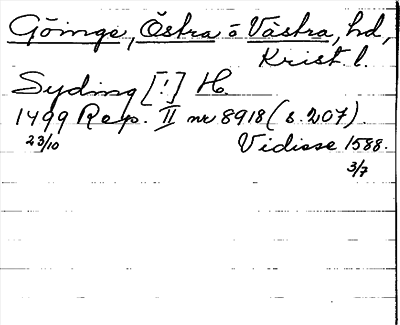 Göinge, Östra o Västra, hd,
Krist. l.
Syding [!] H.
1499 Rep. II nr 8918 (s. 207).
23/10 Vidisse 1588.
3/7